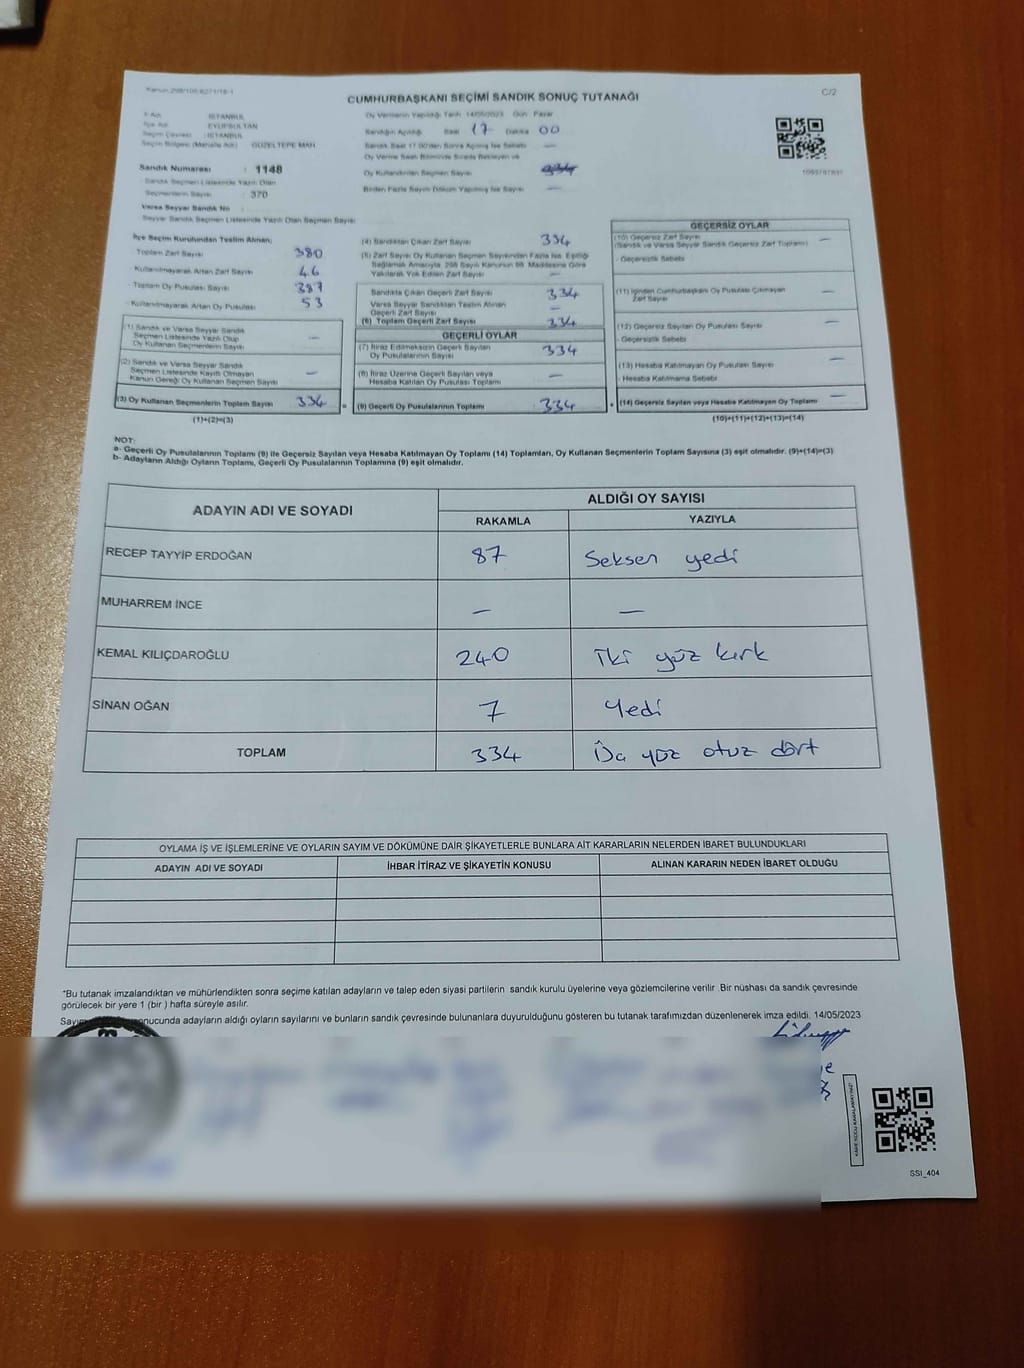 Kanun:298/105-6271/18-1
CUMHURBAŞKANI SEÇİMİ SANDIK SONUÇ TUTANAĞI
C/2
İl Adı : İSTANBUL
İlçe Adı : EYÜPSULTAN
Seçim Çevresi : İSTANBUL
Seçim Bölgesi (Mahalle Adı) : GÜZELTEPE MAH
Sandık Numarası : 1148
Sandık Seçmen Listesinde Yazılı Olan
Seçmenlerin Sayısı : 370
Varsa Seyyar Sandık No
Seyyar Sandık Seçmen Listesinde Yazılı Olan Seçmen Sayısı
Oy Vermenin Yapıldığı Tarih: 14/05/2023 Gün: Pazar
Sandığın Açıldığı Saat 17 Dakika 00
Sandık Saat 17.00'den Sonra Açılmış İse Sebebi —
Oy Verme Saati Bitiminde Sırada Bekleyen ve
Oy Kullandırılan Seçmen Sayısı
Birden Fazla Sayım Döküm Yapılmış İse Sayısı —
İlçe Seçim Kurulundan Teslim Alınan;
Toplam Zarf Sayısı 380
Kullanılmayarak Artan Zarf Sayısı 46
Toplam Oy Pusulası Sayısı 387
Kullanılmayarak Artan Oy Pusulası 53
(1) Sandık ve Varsa Seyyar Sandık
Seçmen Listesinde Yazılı Olup
Oy Kullanan Seçmenlerin Sayısı —
(2) Sandık ve Varsa Seyyar Sandık
Seçmen Listesinde Kayıtlı Olmayan
Kanun Gereği Oy Kullanan Seçmen Sayısı —
(3) Oy Kullanan Seçmenlerin Toplam Sayısı 334
(1)+(2)=(3)
(4) Sandıktan Çıkan Zarf Sayısı 334
(5) Zarf Sayısı Oy Kullanan Seçmen Sayısından Fazla İse, Eşitliği
Sağlamak Amacıyla, 298 Sayılı Kanunun 98. Maddesine Göre
Yakılarak Yok Edilen Zarf Sayısı —
Sandıkta Çıkan Geçerli Zarf Sayısı 334
Varsa Seyyar Sandıktan Teslim Alınan
Geçerli Zarf Sayısı —
(6) Toplam Geçerli Zarf Sayısı 334
GEÇERLİ OYLAR
(7) İtiraz Edilmeksizin Geçerli Sayılan
Oy Pusulalarının Sayısı 334
(8) İtiraz Üzerine Geçerli Sayılan veya
Hesaba Katılan Oy Pusulası Toplamı —
= (9) Geçerli Oy Pusulalarının Toplamı 334
GEÇERSİZ OYLAR
(10) Geçersiz Zarf Sayısı —
(Sandık ve Varsa Seyyar Sandık Geçersiz Zarf Toplamı)
- Geçersizlik Sebebi
(11) İçinden Cumhurbaşkanı Oy Pusulası Çıkmayan
Zarf Sayısı —
(12) Geçersiz Sayılan Oy Pusulası Sayısı —
- Geçersizlik Sebebi
(13) Hesaba Katılmayan Oy Pusulası Sayısı —
- Hesaba Katılmama Sebebi
+ (14) Geçersiz Sayılan veya Hesaba Katılmayan Oy Toplamı —
(10)+(11)+(12)+(13)=(14)
NOT:
a- Geçerli Oy Pusulalarının Toplamı (9) ile Geçersiz Sayılan veya Hesaba Katılmayan Oy Toplamı (14) Toplamları, Oy Kullanan Seçmenlerin Toplam Sayısına (3) eşit olmalıdır. (9)+(14)=(3)
b- Adayların Aldığı Oyların Toplamı, Geçerli Oy Pusulalarının Toplamına (9) eşit olmalıdır.
ADAYIN ADI VE SOYADI
ALDIĞI OY SAYISI
RAKAMLA YAZIYLA
RECEP TAYYİP ERDOĞAN 87 Seksen yedi
MUHARREM İNCE — —
KEMAL KILIÇDAROĞLU 240 İki yüz kırk
SİNAN OĞAN 7 Yedi
TOPLAM 334 yüz otuz dört
OYLAMA İŞ VE İŞLEMLERİNE VE OYLARIN SAYIM VE DÖKÜMÜNE DAİR ŞİKAYETLERLE BUNLARA AİT KARARLARIN NELERDEN İBARET BULUNDUKLARI
ADAYIN ADI VE SOYADI İHBAR İTİRAZ VE ŞİKAYETİN KONUSU ALINAN KARARIN NEDEN İBARET OLDUĞU
*Bu tutanak imzalandıktan ve mühürlendikten sonra seçime katılan adayların ve talep eden siyasi partilerin sandık kurulu üyelerine veya gözlemcilerine verilir .Bir nüshası da sandık çevresinde
görülecek bir yere 1 (bir ) hafta süreyle asılır.
onucunda adayların aldığı oyların sayılarını ve bunların sandık çevresinde bulunanlara duyurulduğunu gösteren bu tutanak tarafımızdan düzenlenerek imza edildi. 14/05/2023
SSI_404